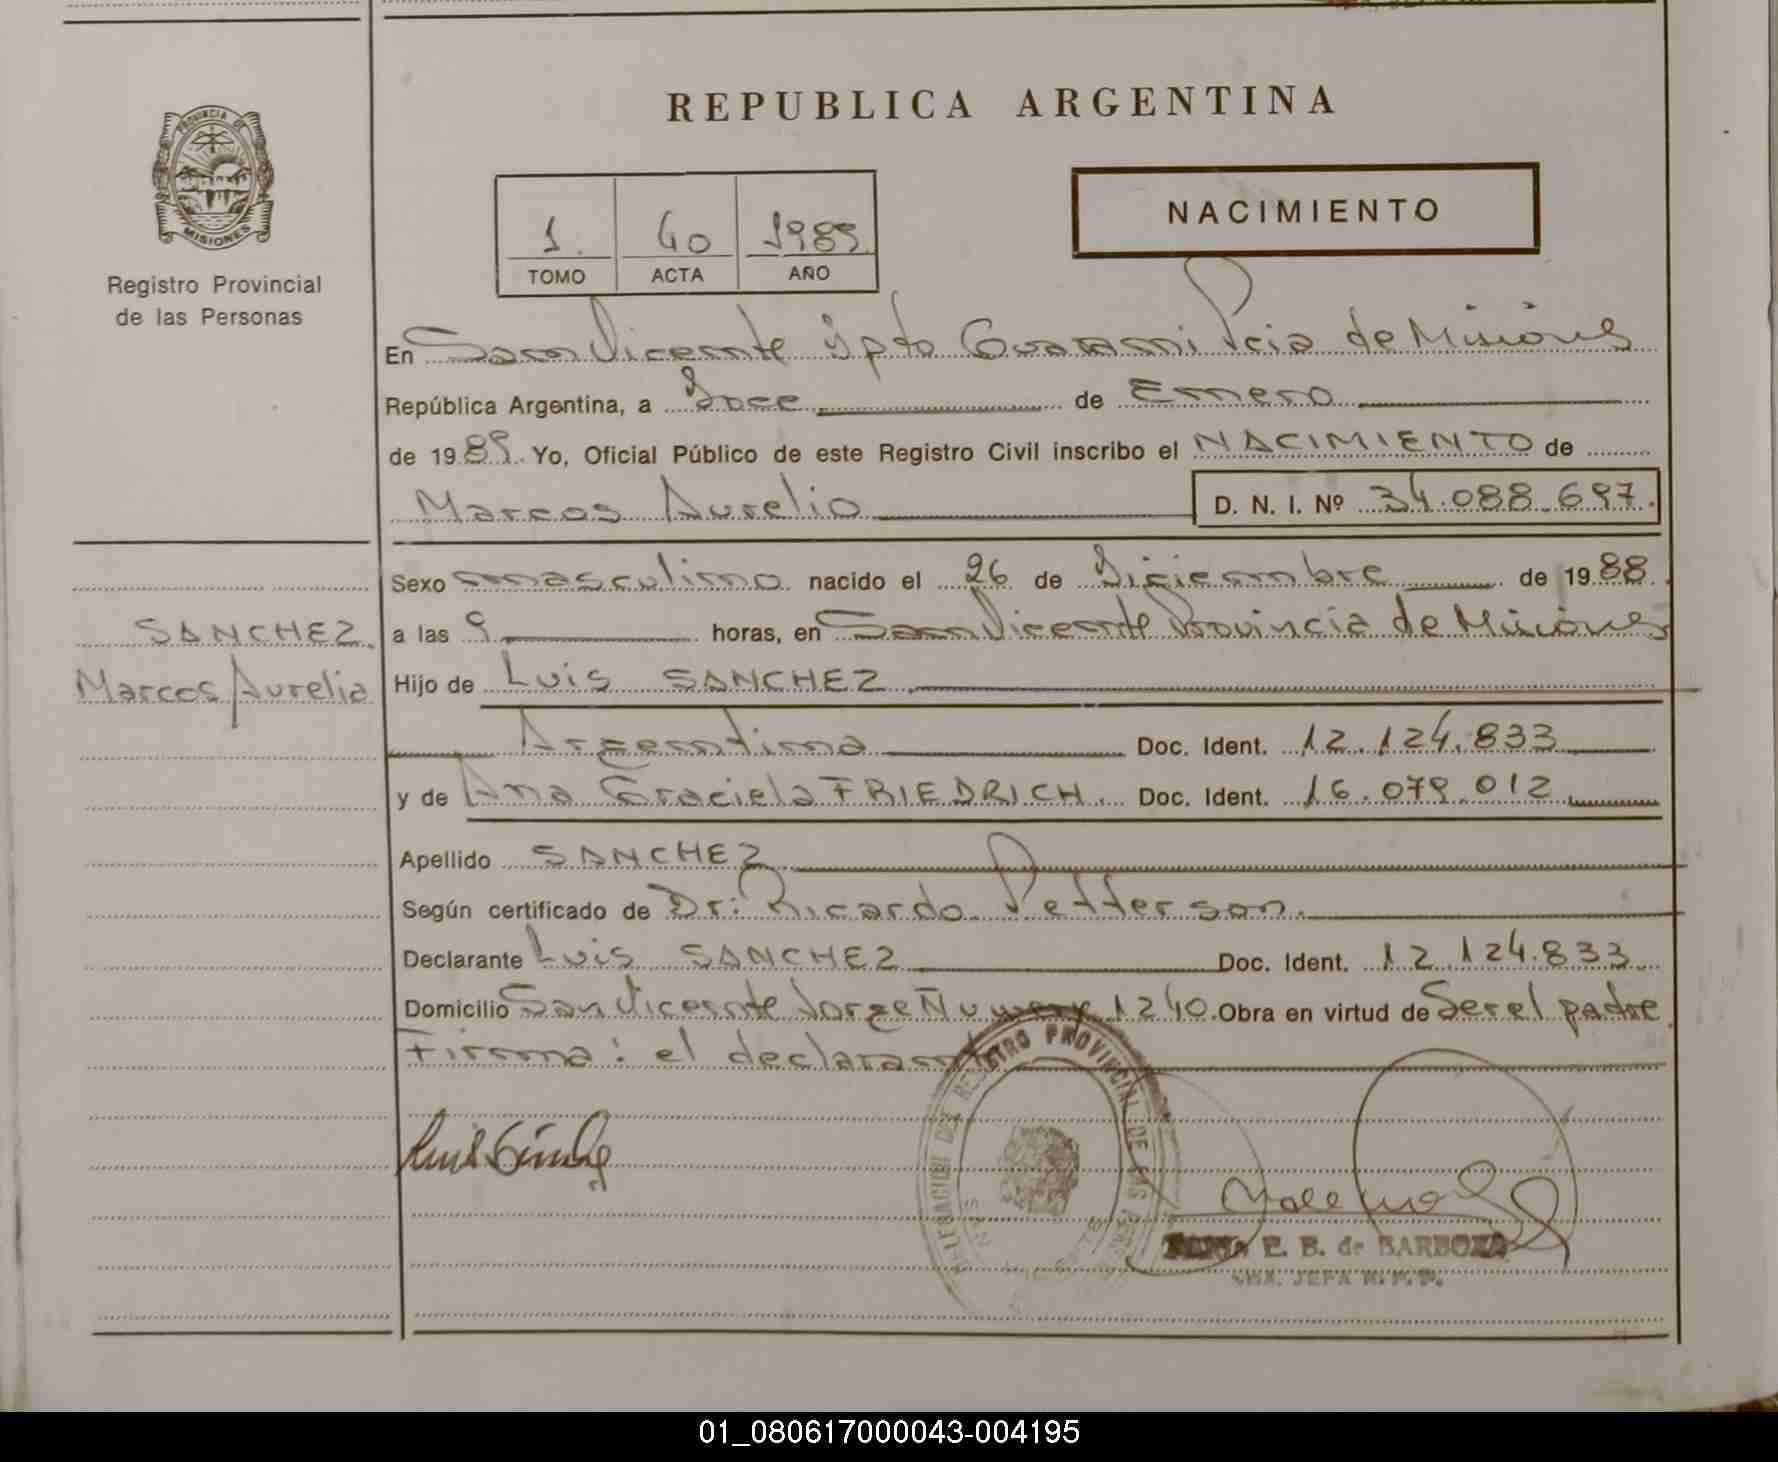 REPUBLICA ARGENTINA
PROVINCIA DE
MISIONES
Registro Provincial
de las Personas
1. 40 1989
TOMO ACTA AÑO
NACIMIENTO
En San Vicente Dpto Guarani Pcia de Misiones
República Argentina, a Doce de Enero
de 1989. Yo, Oficial Público de este Registro Civil inscribo el NACIMIENTO de
Marcos Aurelio D. N. I. Nº 34.088.697.
Sexo masculino nacido el 26 de Diciembre de 1988.
SANCHEZ.
a las 9 horas, en San Vicente Provincia de Misiones
Marcos Aurelio
Hijo de Luis SANCHEZ
Argentina Doc. Ident. 12.124.833
y de Ana Graciela FRIEDRICH. Doc. Ident. 16.079.012
Apellido SANCHEZ
Según certificado de Dr: Ricardo Petterson.
Declarante Luis SANCHEZ Doc. Ident. 12.124.833
Domicilio San Vicente Jorge 1240. Obra en virtud de Ser el padre
Firma: el declarante
REGISTRO PROVINCIAL DE LAS
E. B. de BARBOZA
JEFA R. P. P.
01_080617000043-004195